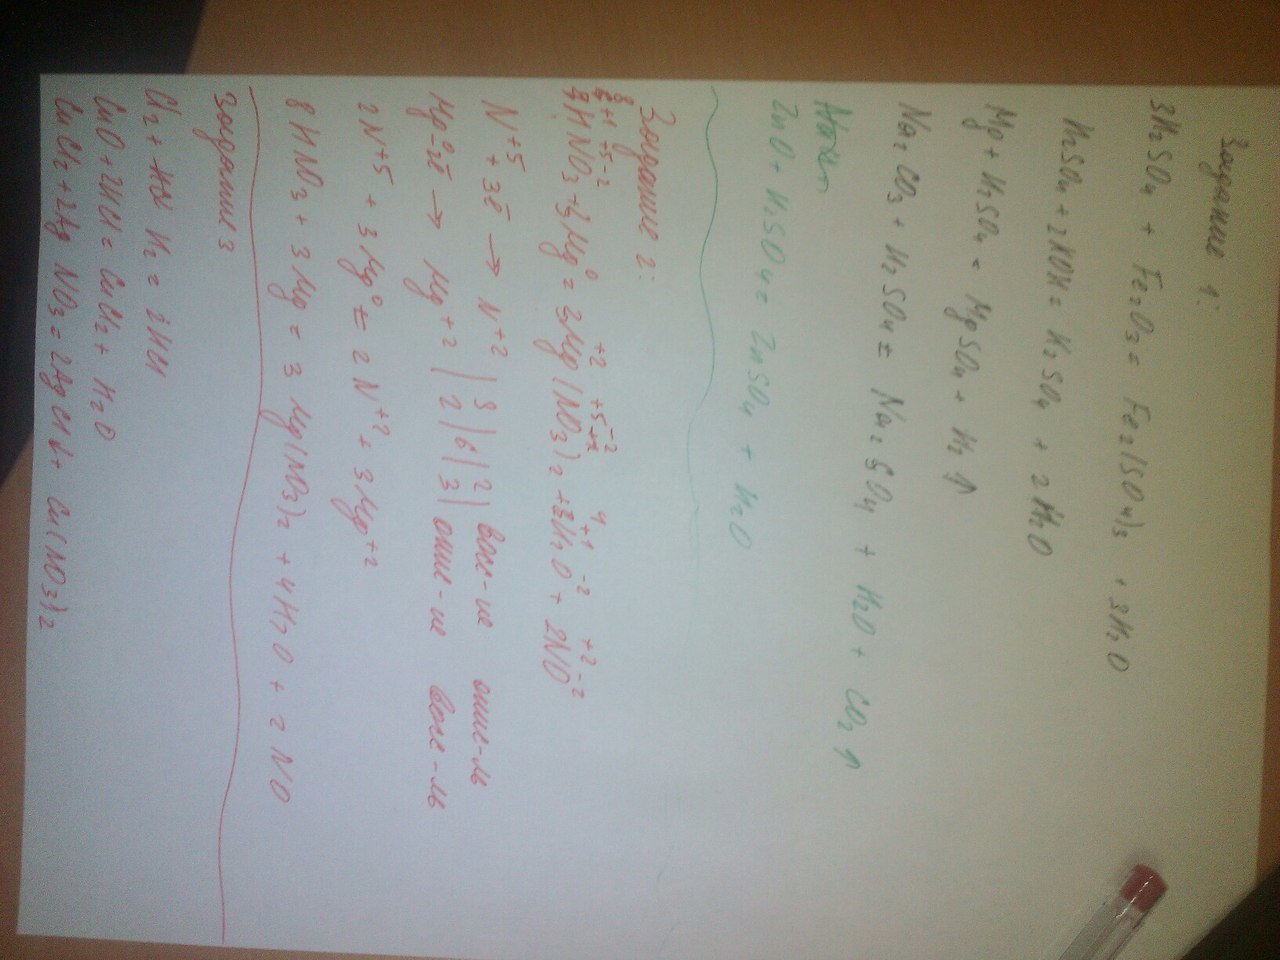 Задание 1:
3H2SO4 + Fe2O3 = Fe2(SO4)3 + 3H2O
H2SO4 + 2KOH = K2SO4 + 2H2O
Mg + H2SO4 = MgSO4 + H2↑
Na2CO3 + H2SO4 = Na2SO4 + H2O + CO2↑
ZnO + H2SO4 = ZnSO4 + H2O
Задание 2:
8 +1 +5 -2 0 +2 +5 -2 4 +1 -2 +2 -2
HNO3 + 3Mg = 3Mg(NO3)2 + H2O + 2NO
N+5 + 3ē → N+2 | 3 | 6 | 2 | восс-ие окис-ль
Mg0 - 2ē → Mg+2 | 2 | | 3 | окис-ие восс-ль
2N+5 + 3Mg0 = 2N+2 + 3Mg+2
8HNO3 + 3Mg = 3Mg(NO3)2 + 4H2O + 2NO
задание 3
Cl2 + H2 = 2HCl
CuO + 2HCl = CuCl2 + H2O
CuCl2 + 2AgNO3 = 2AgCl↓ + Cu(NO3)2